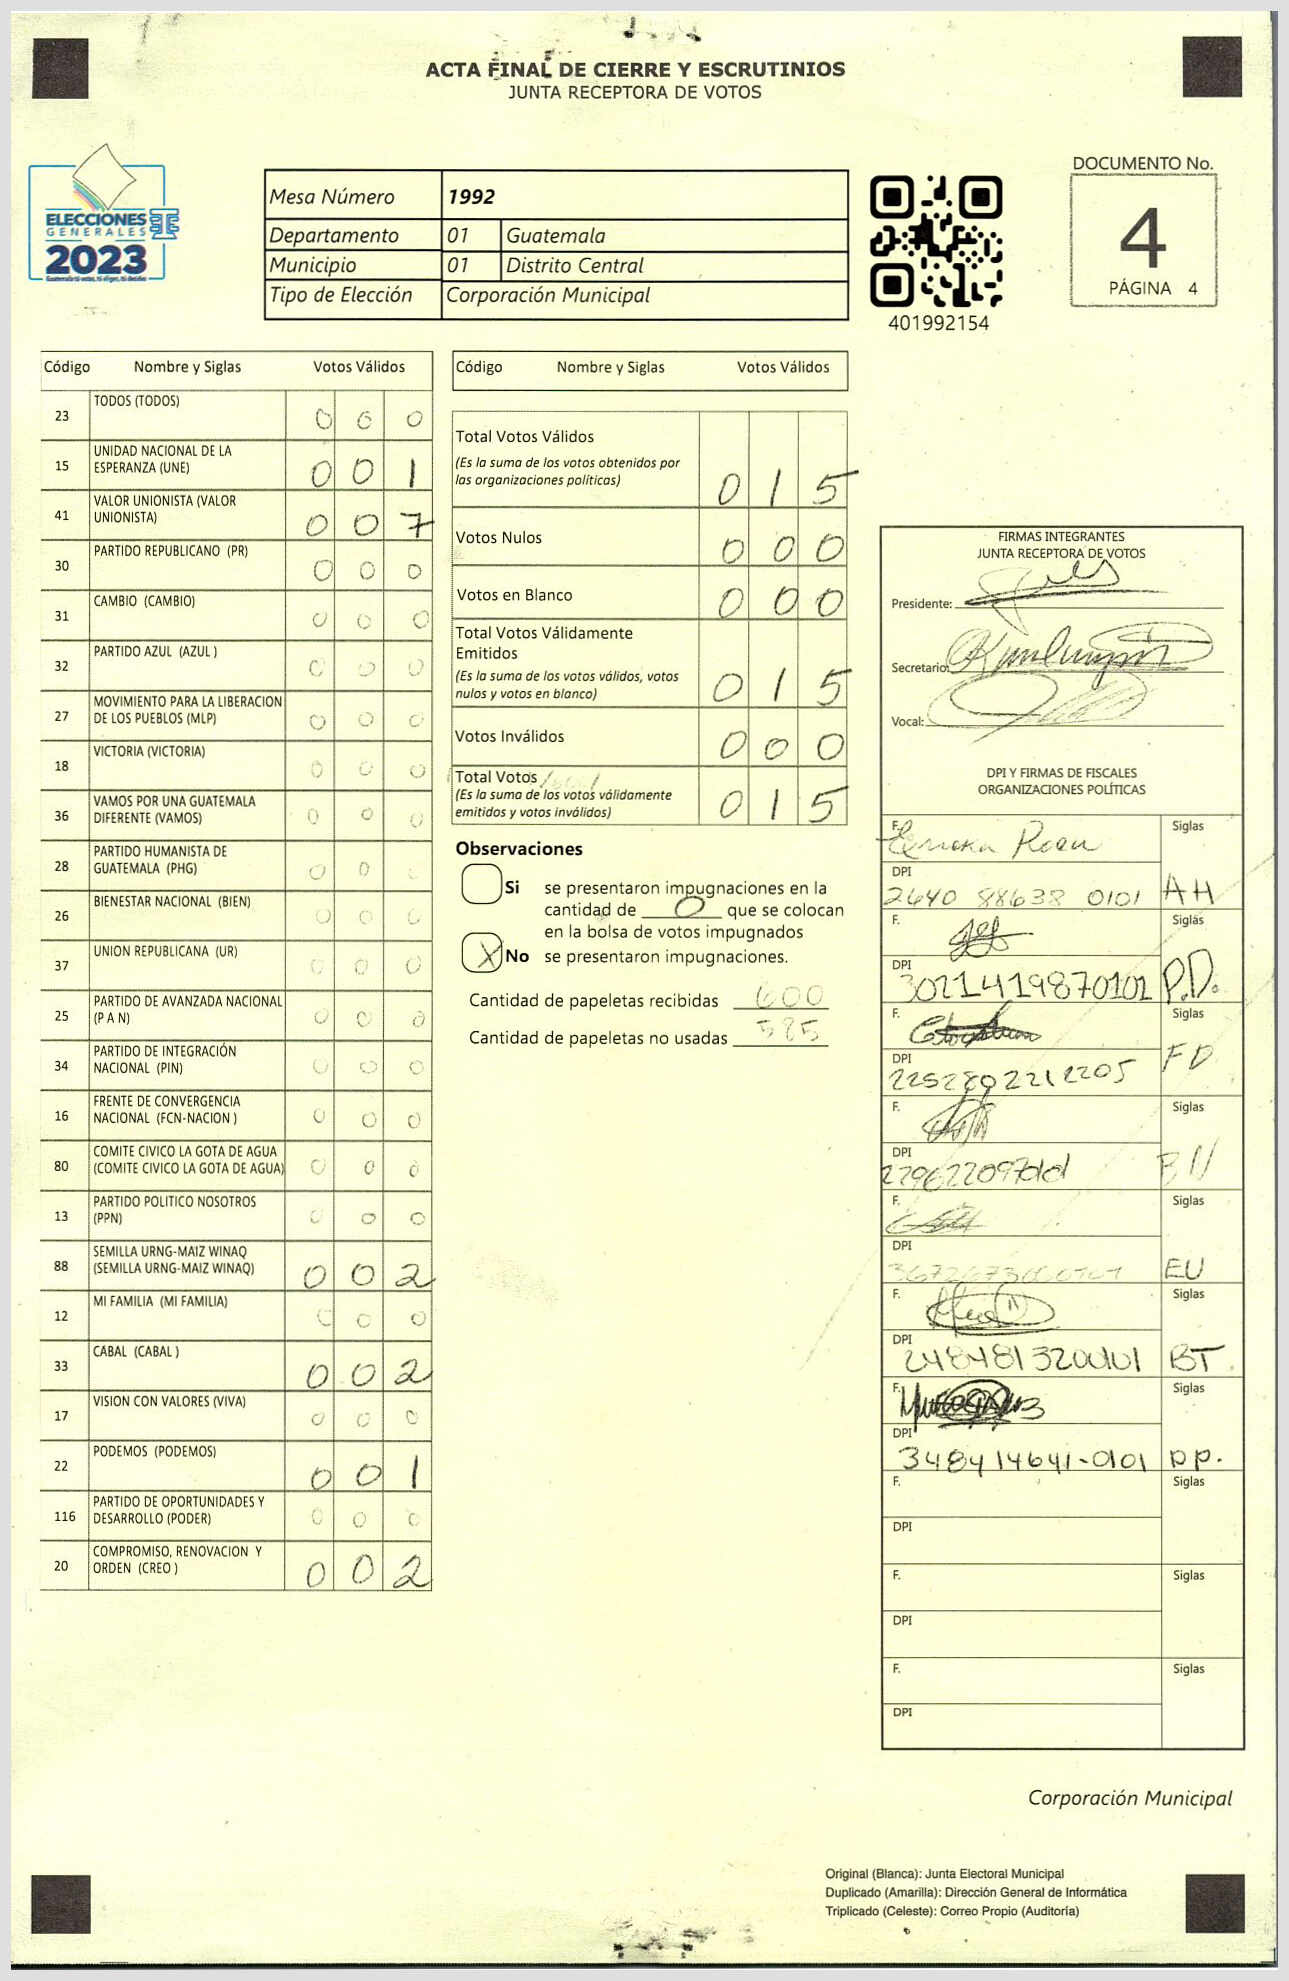 ACTA FINAL DE CIERRE Y ESCRUTINIOS
JUNTA RECEPTORA DE VOTOS
ELECCIONES
GENERALES
2023
Mesa Número 1992
Departamento 01 Guatemala
Municipio 01 Distrito Central
Tipo de Elección Corporación Municipal
401992154
DOCUMENTO No.
4
PÁGINA 4
Código Nombre y Siglas Votos Válidos
23 TODOS (TODOS) 0 0 0
15 UNIDAD NACIONAL DE LA
ESPERANZA (UNE) 0 0 1
41 VALOR UNIONISTA (VALOR
UNIONISTA) 0 0 7
30 PARTIDO REPUBLICANO (PR) 0 0 0
31 CAMBIO (CAMBIO) 0 0 0
32 PARTIDO AZUL (AZUL ) 0 0 0
27 MOVIMIENTO PARA LA LIBERACION
DE LOS PUEBLOS (MLP) 0 0 0
18 VICTORIA (VICTORIA) 0 0 0
36 VAMOS POR UNA GUATEMALA
DIFERENTE (VAMOS) 0 0 0
28 PARTIDO HUMANISTA DE
GUATEMALA (PHG) 0 0 0
26 BIENESTAR NACIONAL (BIEN) 0 0 0
37 UNION REPUBLICANA (UR) 0 0 0
25 PARTIDO DE AVANZADA NACIONAL
(P A N) 0 0 0
34 PARTIDO DE INTEGRACIÓN
NACIONAL (PIN) 0 0 0
16 FRENTE DE CONVERGENCIA
NACIONAL (FCN-NACION ) 0 0 0
80 COMITE CIVICO LA GOTA DE AGUA
(COMITE CIVICO LA GOTA DE AGUA) 0 0 0
13 PARTIDO POLITICO NOSOTROS
(PPN) 0 0 0
88 SEMILLA URNG-MAIZ WINAQ
(SEMILLA URNG-MAIZ WINAQ) 0 0 2
12 MI FAMILIA (MI FAMILIA) 0 0 0
33 CABAL (CABAL ) 0 0 2
17 VISION CON VALORES (VIVA) 0 0 0
22 PODEMOS (PODEMOS) 0 0 1
116 PARTIDO DE OPORTUNIDADES Y
DESARROLLO (PODER) 0 0 0
20 COMPROMISO, RENOVACION Y
ORDEN (CREO ) 0 0 2
Código Nombre y Siglas Votos Válidos
Total Votos Válidos
(Es la suma de los votos obtenidos por
las organizaciones políticas) 0 1 5
Votos Nulos 0 0 0
Votos en Blanco 0 0 0
Total Votos Válidamente
Emitidos
(Es la suma de los votos válidos, votos
nulos y votos en blanco) 0 1 5
Votos Inválidos 0 0 0
Total Votos
(Es la suma de los votos válidamente
emitidos y votos inválidos) 0 1 5
Observaciones
Si se presentaron impugnaciones en la
cantidad de 0 que se colocan
en la bolsa de votos impugnados
X No se presentaron impugnaciones.
Cantidad de papeletas recibidas 600
Cantidad de papeletas no usadas 585
FIRMAS INTEGRANTES
JUNTA RECEPTORA DE VOTOS
Presidente:
Secretario:
Vocal:
DPI Y FIRMAS DE FISCALES
ORGANIZACIONES POLÍTICAS
F. Siglas
DPI
2640 88638 0101 AH
F. Siglas
DPI
3021419870101 P.D.
F. Siglas
DPI
2252802212205 FD
F. Siglas
DPI
BN
F. Siglas
DPI
EU
F. Siglas
DPI
248481320101 BT
F. Siglas
DPI
348414641-0101 PP.
F. Siglas
DPI
F. Siglas
DPI
F. Siglas
DPI
Corporación Municipal
Original (Blanca): Junta Electoral Municipal
Duplicado (Amarilla): Dirección General de Informática
Triplicado (Celeste): Correo Propio (Auditoría)